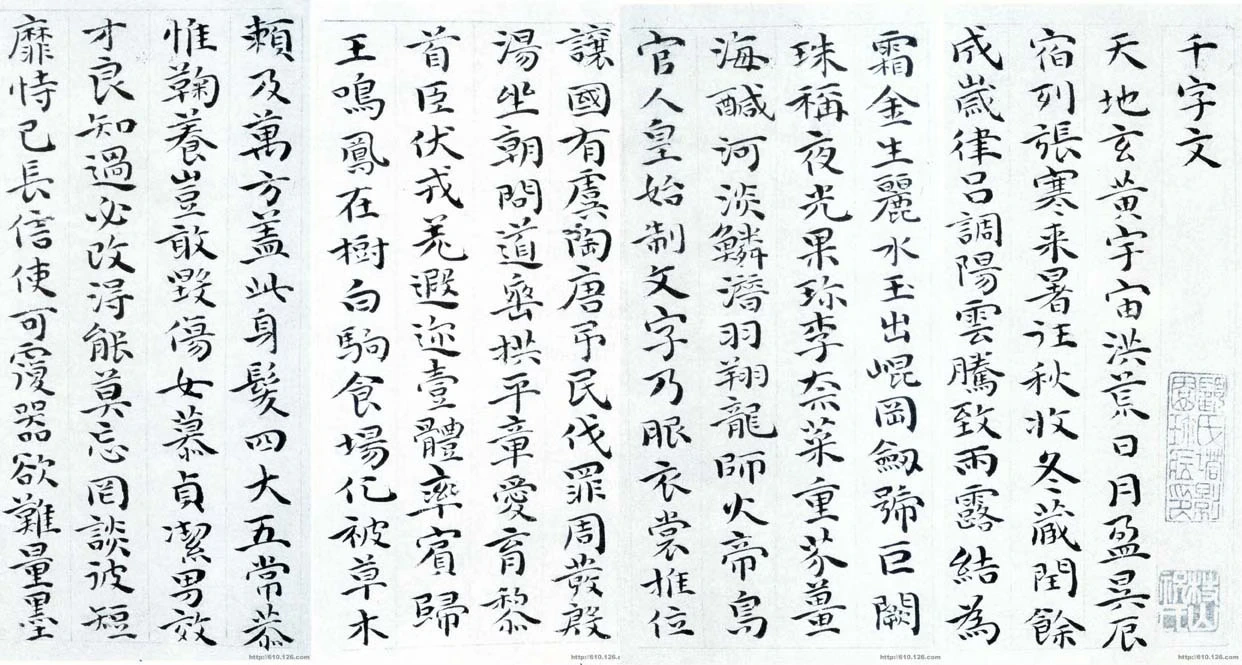 千字文
天地玄黄宇宙洪荒日月盈昃辰
宿列張寒来暑往秋收冬蔵閏餘
成歲律吕調陽雲騰致雨露結為
霜金生麗水玉出崐岡劔號巨闕
珠稱夜光果珍李柰菜重芥薑
海醎河淡鱗潜羽翔龍師火帝鳥
官人皇始制文字乃服衣裳推位
讓國有虞陶唐弔民伐罪周發殷
湯坐朝問道垂拱平章愛育黎
首臣伏戎羌遐迩壹體率賓歸
王鳴鳳在樹白駒食場化被草木
頼及萬方盖此身髮四大五常恭
惟鞠養豈敢毀傷女慕貞潔男效
才良知過必改得能莫忘罔談彼短
靡恃己長信使可覆器欲難量墨
http://610.126.com
http://610.126.c
http://610.126.com
http://610.126.com